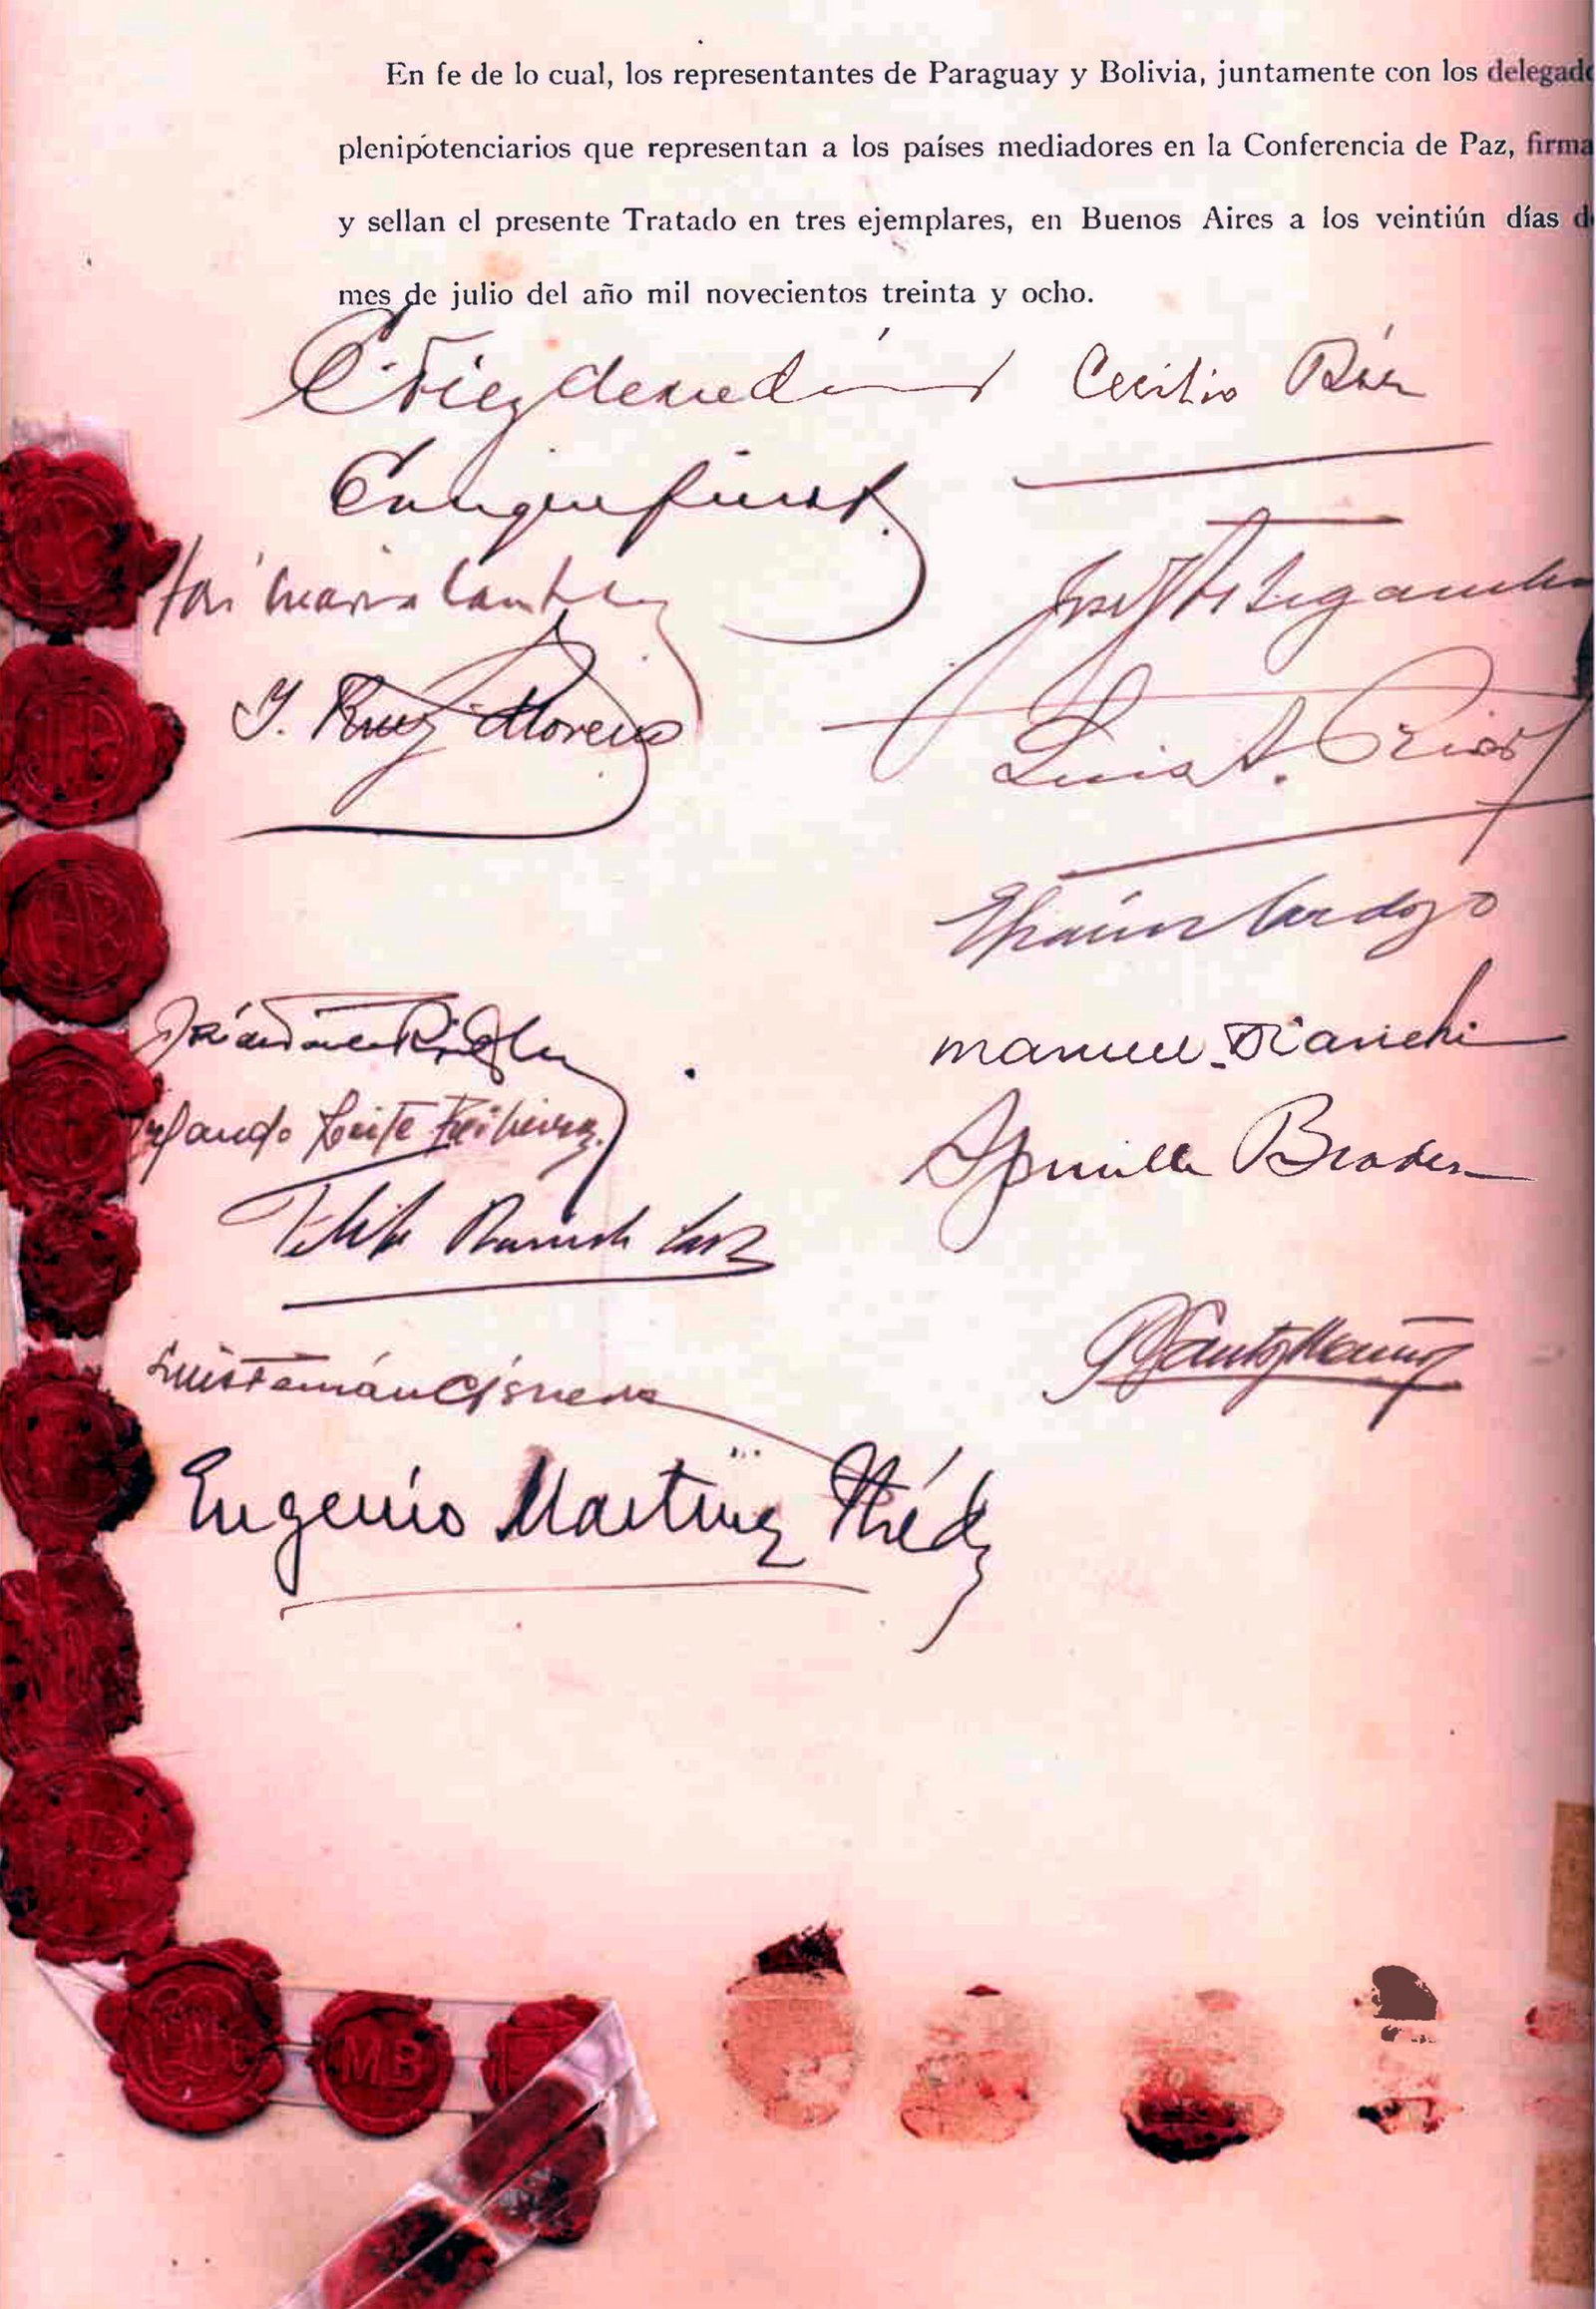 En fe de lo cual, los representantes de Paraguay y Bolivia, juntamente con los delegado
plenipotenciarios que representan a los países mediadores en la Conferencia de Paz, firma
y sellan el presente Tratado en tres ejemplares, en Buenos Aires a los veintiún días d
mes de julio del año mil novecientos treinta y ocho.
E. Diez de Medina Cecilio Báez
Enrique Finot
José María Cantilo
I. Ruiz Moreno
Luis A. Riart
Efraím Cardozo
Manuel Bianchi
Orlando Leite Ribeiro
Spruille Braden
Luis Fernán Cisneros
Eugenio Martínez Thédy
MB